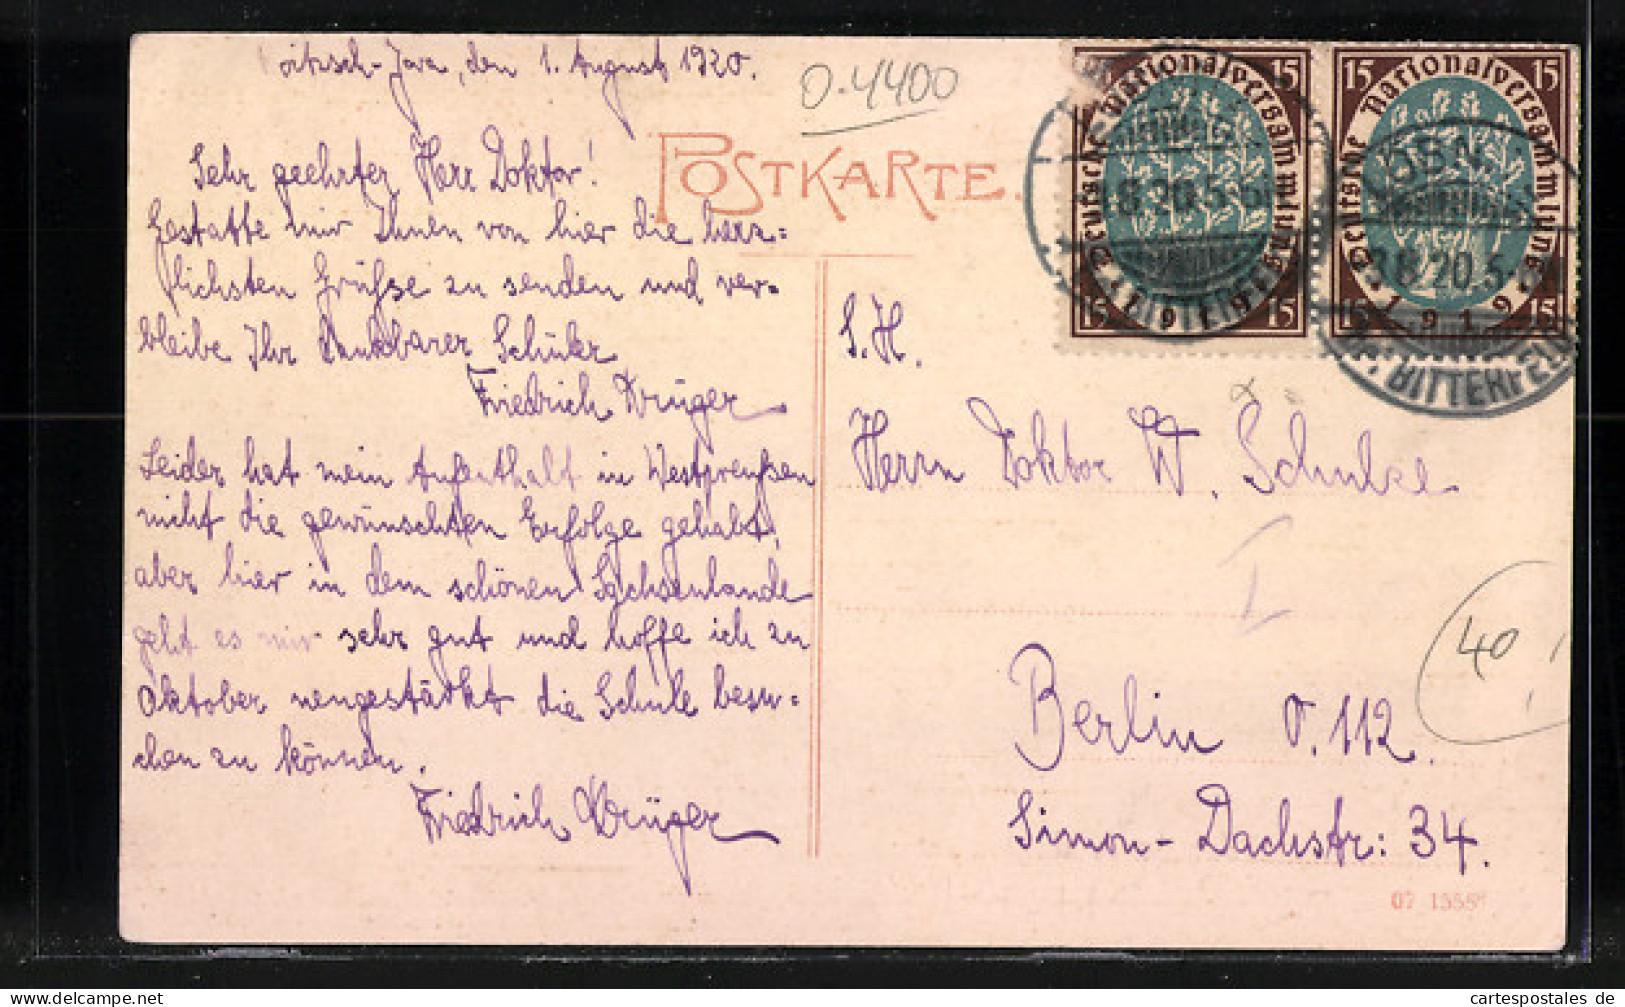 den 1. August 1920.
O-4400
POSTKARTE.
Sehr geehrter Herr Doktor!
Gestatte mir Ihnen von hier die herz=
lichsten Grüsse zu senden und ver=
bleibe Ihr dankbarer Schüler
Friedrich Krüger
Leider hat mein Aufenthalt in Westpreußen
nicht die gewünschten Erfolge gehabt,
aber hier in dem schönen Sachsenlande
geht es mir sehr gut und hoffe ich zu
Oktober neugestärkt die Schule besu=
chen zu können.
Friedrich Krüger
Deutsche Nationalversammlung
15 15
15 15
1919
Deutsche Nationalversammlung
15 15
15 15
1919
8.20.5
8.20.5
BITTERFELD
S. H.
Herrn Doktor W. Schulze
I
40
Berlin O. 112.
Simon-Dachstr: 34.
07
www.cartespostales.eu
cartespostales de